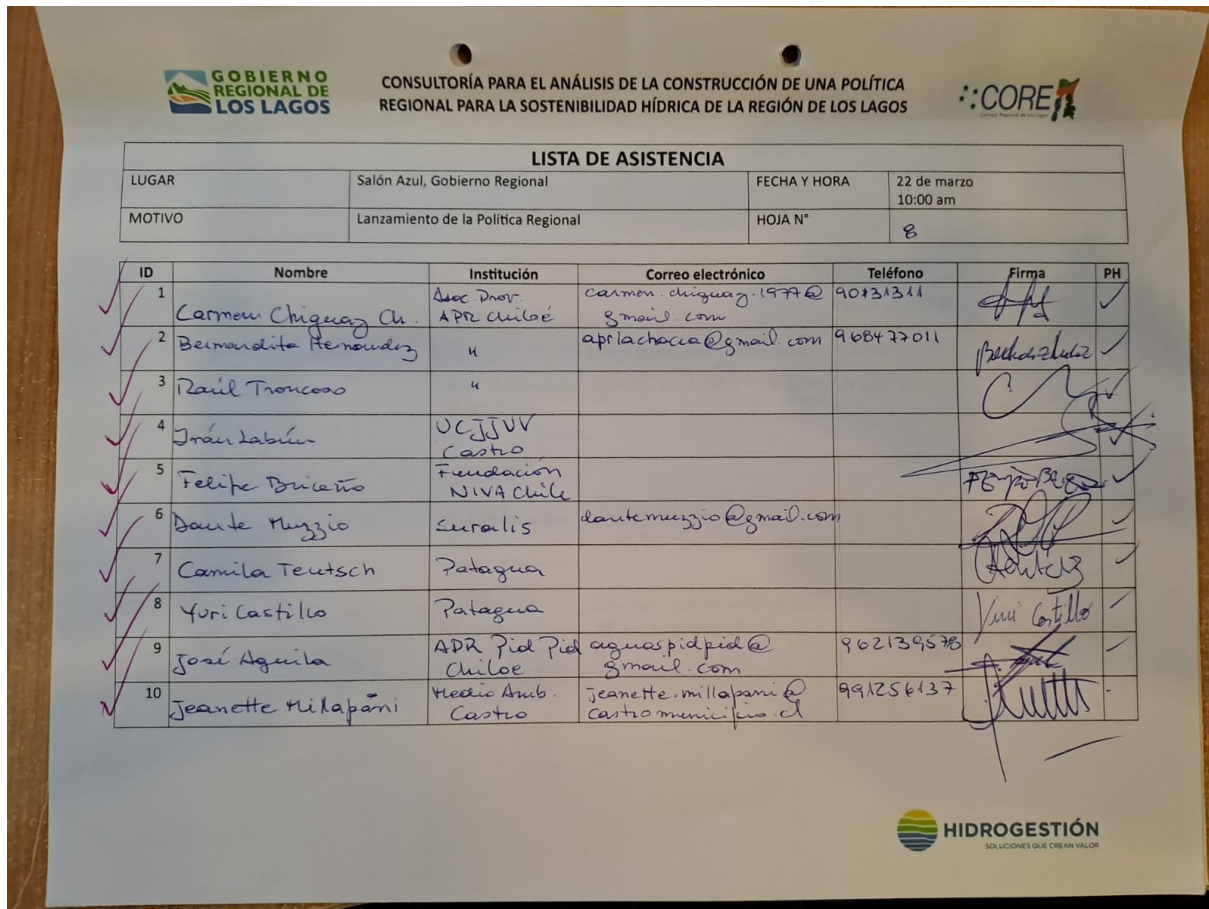 GOBIERNO
REGIONAL DE
LOS LAGOS
CONSULTORÍA PARA EL ANÁLISIS DE LA CONSTRUCCIÓN DE UNA POLÍTICA
REGIONAL PARA LA SOSTENIBILIDAD HÍDRICA DE LA REGIÓN DE LOS LAGOS
CORE
LISTA DE ASISTENCIA
LUGAR Salón Azul, Gobierno Regional FECHA Y HORA 22 de marzo
10:00 am
MOTIVO Lanzamiento de la Política Regional HOJA N° 8
ID Nombre Institución Correo electrónico Teléfono Firma PH
1 Carmen Chiguay Ch. Asoc. Prov. carmen.chiguay.1977@
APR Chiloé gmail.com
2 Bernardita Hernandez " aprlachacra@gmail.com 968477011
3 Raúl Troncoso "
4 UCJJVV
Castro
5 Felipe Briceño Fundación
NIVA Chile
6 Dante Muzzio Suralis dantemuzzio@gmail.com
7 Camila Teutsch Patagua
8 Yuri Castillo Patagua Yuri Castillo
9 José Aguila APR Pid Pid aguaspidpid@ 962139578
Chiloe gmail.com
10 Jeanette Millapani Medio Amb. jeanette.millapani@ 991256137
Castro castromunicipio.cl
HIDROGESTIÓN
SOLUCIONES QUE CREAN VALOR